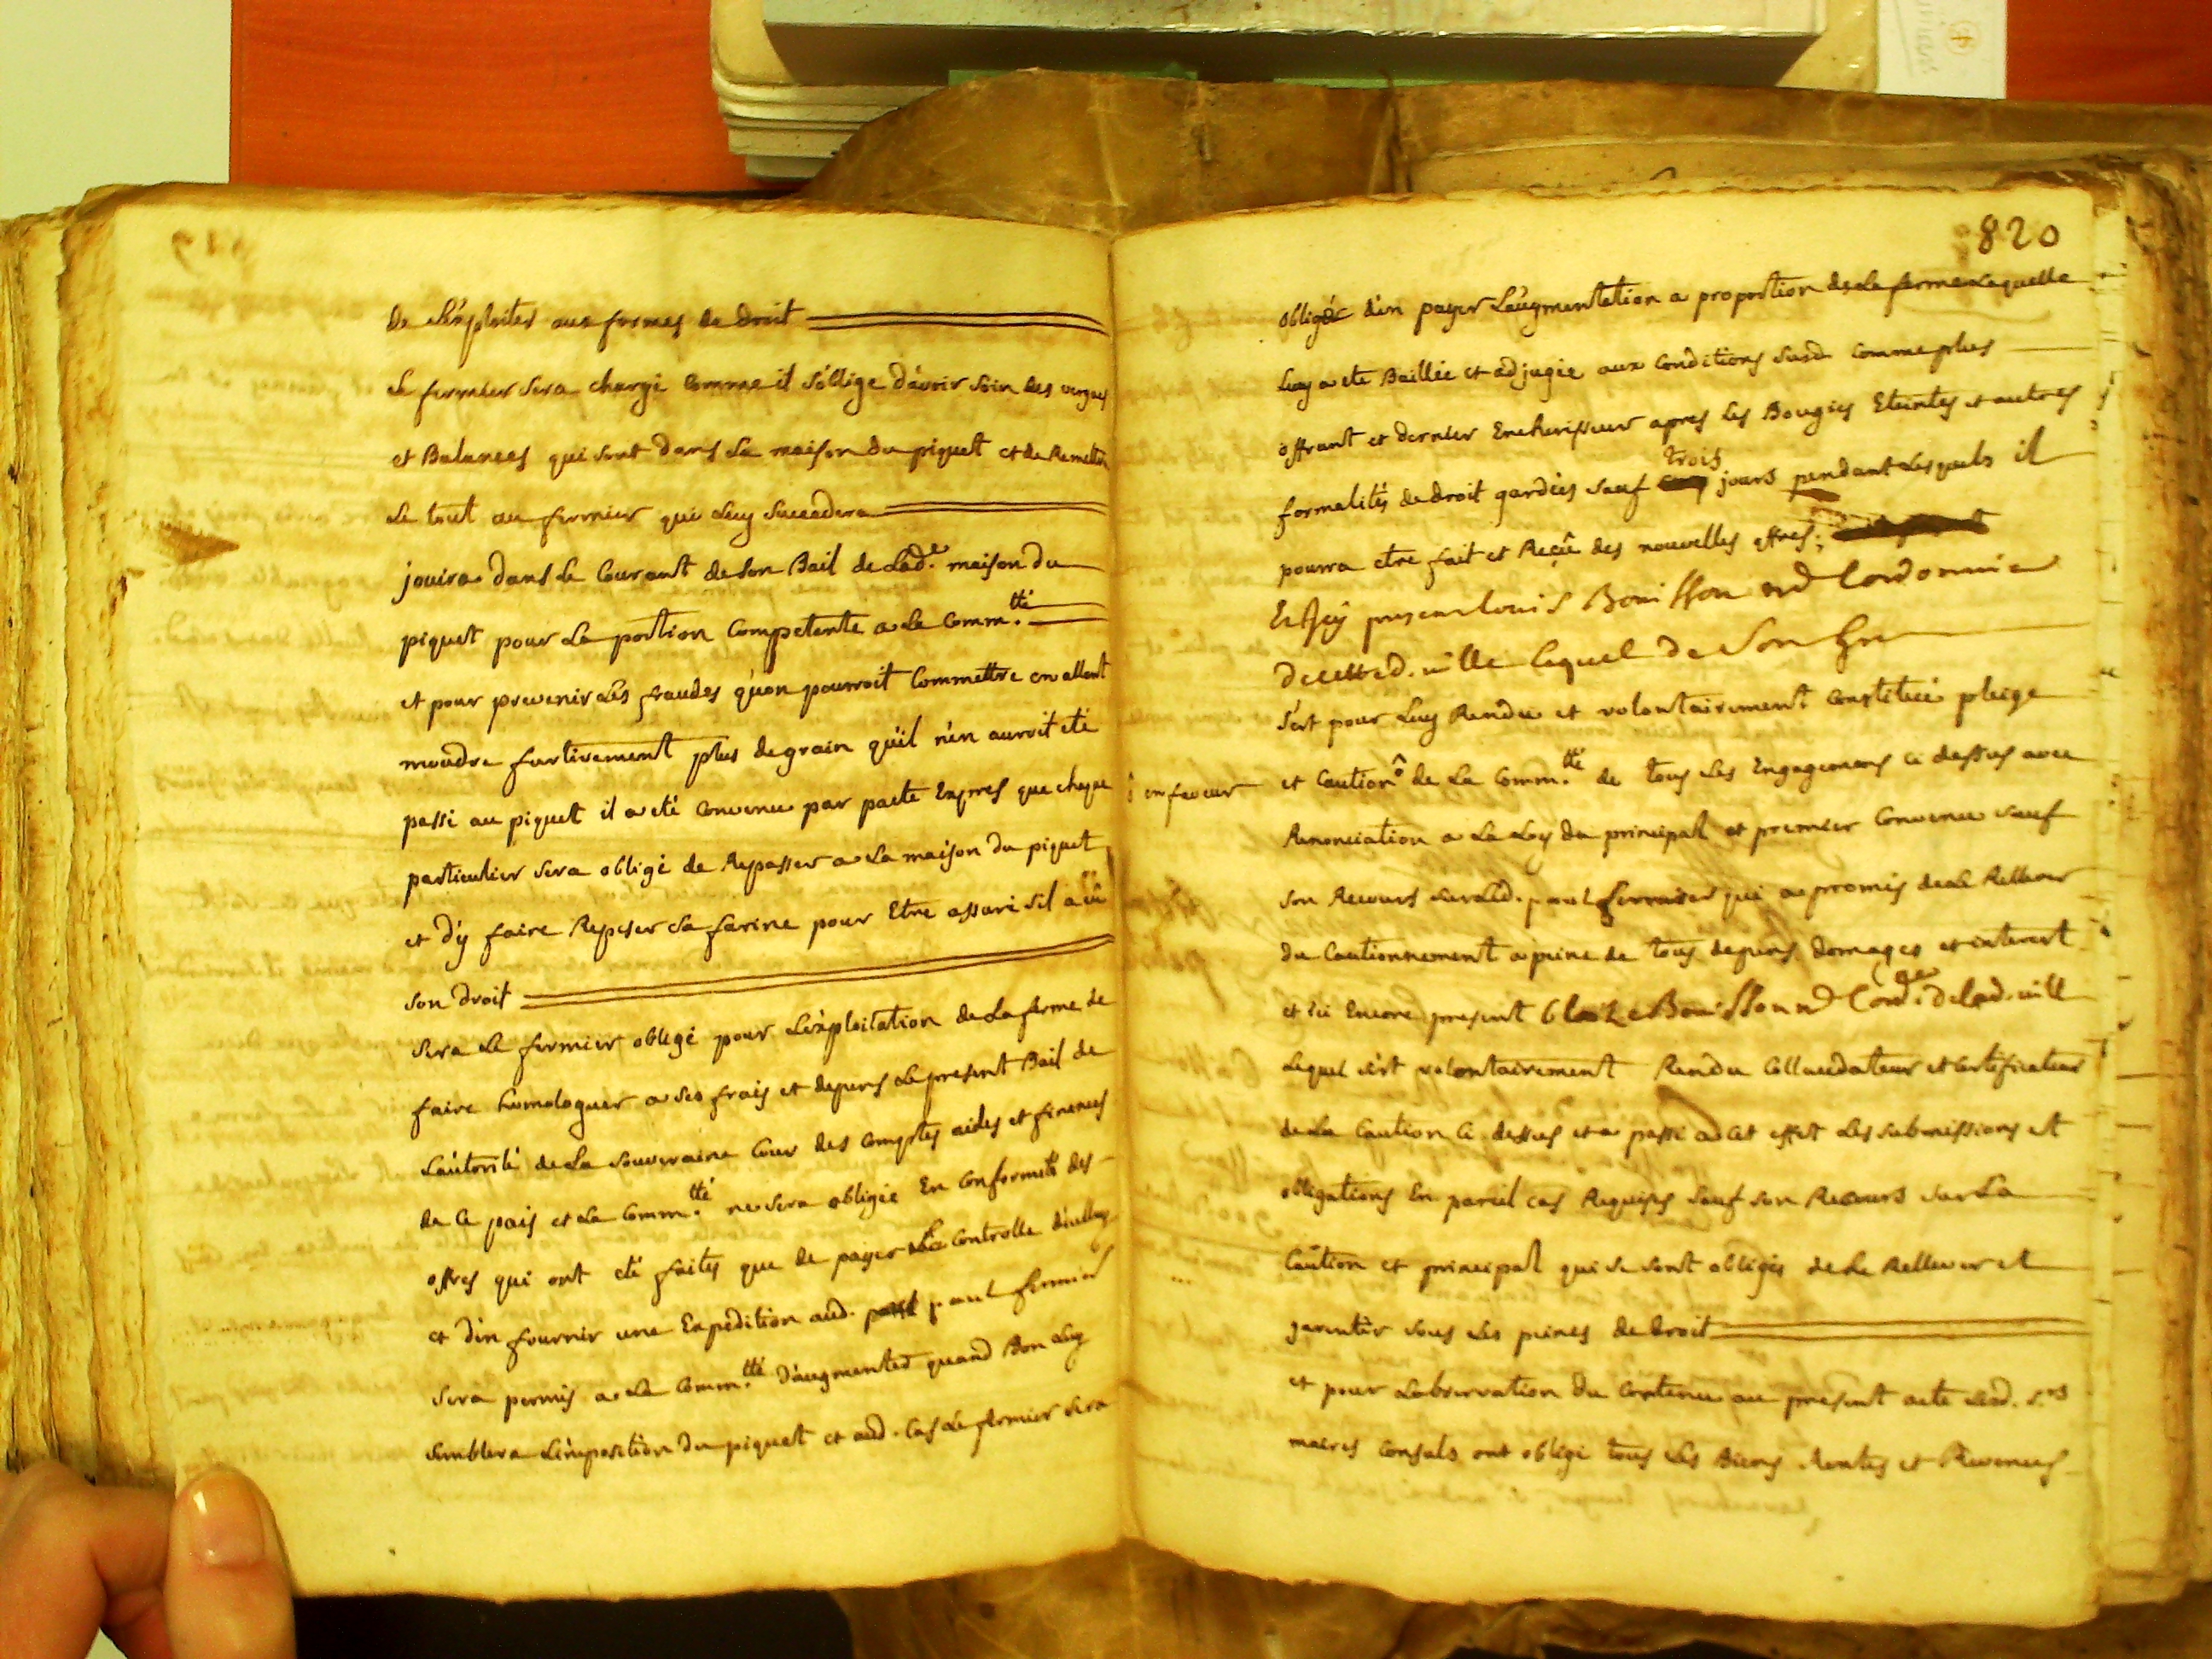 de l'éxploiter aux formes de droit
Le fermier sera chargé comme il s'óblige d'ávoir soin des
et Balances qui sont dans la maison du piquet et de Remettre
Le tout au fermier qui Luy succedera
jouira dans le Courant de son Bail de Lad.e maison du
piquet pour La portion Competente a La Comm.tté
et pour prevenir Les fraudes qu'on pourroit Commettre en allant
moudre furtivement plus de grain qu'il n'en auroit eté
passé au piquet il a eté Convenu par pacte Expres que chaque
particulier sera obligé de Repasser a La maison du piquet
et d'y faire Repeser sa farine pour Etre assuré s'il a
son droit
Sera Le fermier obligé pour L'éxploitation de La ferme de
faire homologuer a ses frais et depens Le present Bail de
L'áutorité de La Souveraine Cour des Comptes aides et finences
de Ce pais et La Comm.tté ne sera obligée En Conformité des
offres qui ont eté faites que de payer Le Controlle
et d'en fournir une Expedition aud. paul fermier
sera permis a La Comm.tté D'augmenter quand Bon Luy
semblera L'imposition du piquet et aud. Cas Le fermier sera
820
obligé d'en payer L'áugmentation a proportion de La ferme Laquelle
Luy a eté Baillée et adjugée aux Conditions susd. Comme plus
offrant et dernier Encherisseur apres Les Bougies Eteintes et autres
trois
formalités de droit gardées sauf jours pendant Lesquels il
pourra etre fait et Reçû des nouvelles offres;
Et Icy present Louis Bouisson md Cordonnier
de cette d. ville lequel de son gre
s'est pour Luy Rendu et volontairement Constitué pleige
ô en faveur
et Caution ô de La Comm.tté de tous Les Engagemens ci dessus avec
Renonciation a La Loy du principal et premier Convenu sauf
son Recours sur Led. paul fermier qui a promis de le Rellever
du Cautionnement a peine de tous depens domages et interest
et ici Encore present Blaize Bouisson md Cord.er de lad. ville
Lequel s'est volontairement Rendu Collaudateur et Certificateur
de La Caution Ci dessus et a passé a Cet effet Les submissions et
obligations En pareil cas Requises sauf son Recours sur La
Caution et principal qui se sont obligés de Le Rellever et
garentir sous Les peines de droit
et pour L'observation du Contenu au present acte Lesd. s.rs
maires Consuls ont obligé tous Les Biens Rentes et Revenus